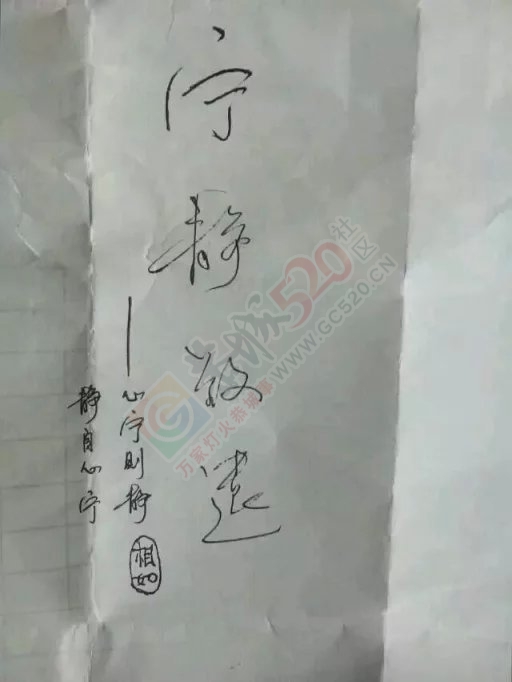 宁静致远
——心宁则静
静自心宁
相如
恭城520社区
WWW.GC520.CN
万家灯火恭城事